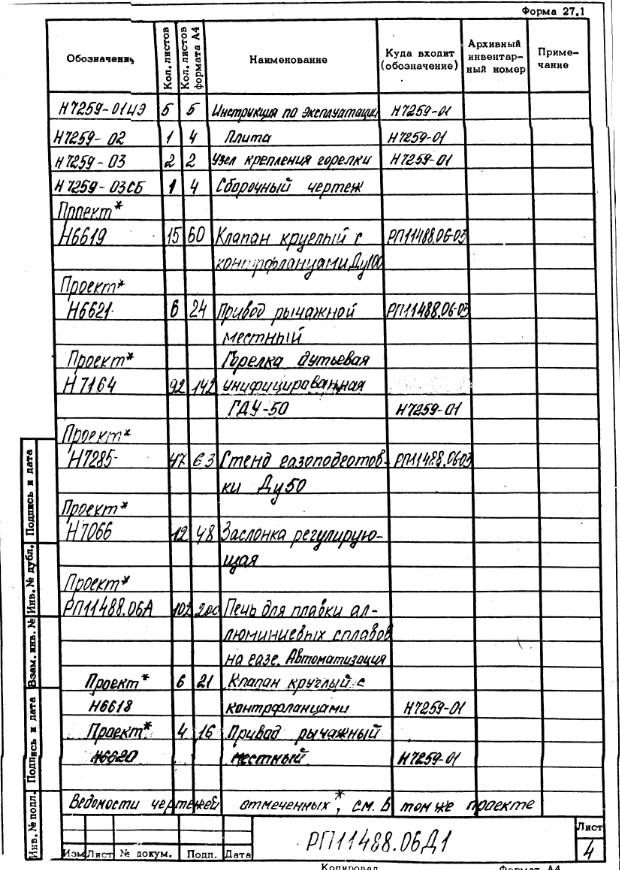 Форма 27.1
Обозначение Кол. листов Кол. листов формата А4 Наименование Куда входит (обозначение) Архивный инвентарный номер Примечание
Н7259-01ИЭ 5 5 Инструкция по эксплуатации Н7259-01
Н7259-02 1 4 Плита Н7259-01
Н7259-03 2 2 Узел крепления горелки Н7259-01
Н7259-03СБ 1 4 Сборочный чертеж
Проект*
Н6619 15 60 Клапан круглый с РП11488.06-03
контрфланцами Ду100
Проект*
Н6621 6 24 Привод рычажной РП11488.06-03
местный
Проект* Горелка дутьевая
Н7164 92 142 унифицированная
ГДУ-50 Н7259-01
Проект*
Н7285 47 63 Стенд газоподготов- РП11488.06-03
ки Ду50
Проект*
Н7066 12 48 Заслонка регулирую-
щая
Проект*
РП11488.06А 102 200 Печь для плавки ал-
люминиевых сплавов
на газе. Автоматизация
Проект* 6 21 Клапан круглый с
Н6618 контрфланцами Н7259-01
Проект* 4 16 Привод рычажный
Н6620 местный Н7259-01
Ведомости чертежей отмеченных*, см. в том же проекте
Инв. № подл. Подпись и дата Взам. инв. № Инв. № дубл. Подпись и дата
РП11488.06Д1
Лист
4
Изм Лист № докум. Подп. Дата
Копировал Формат А4